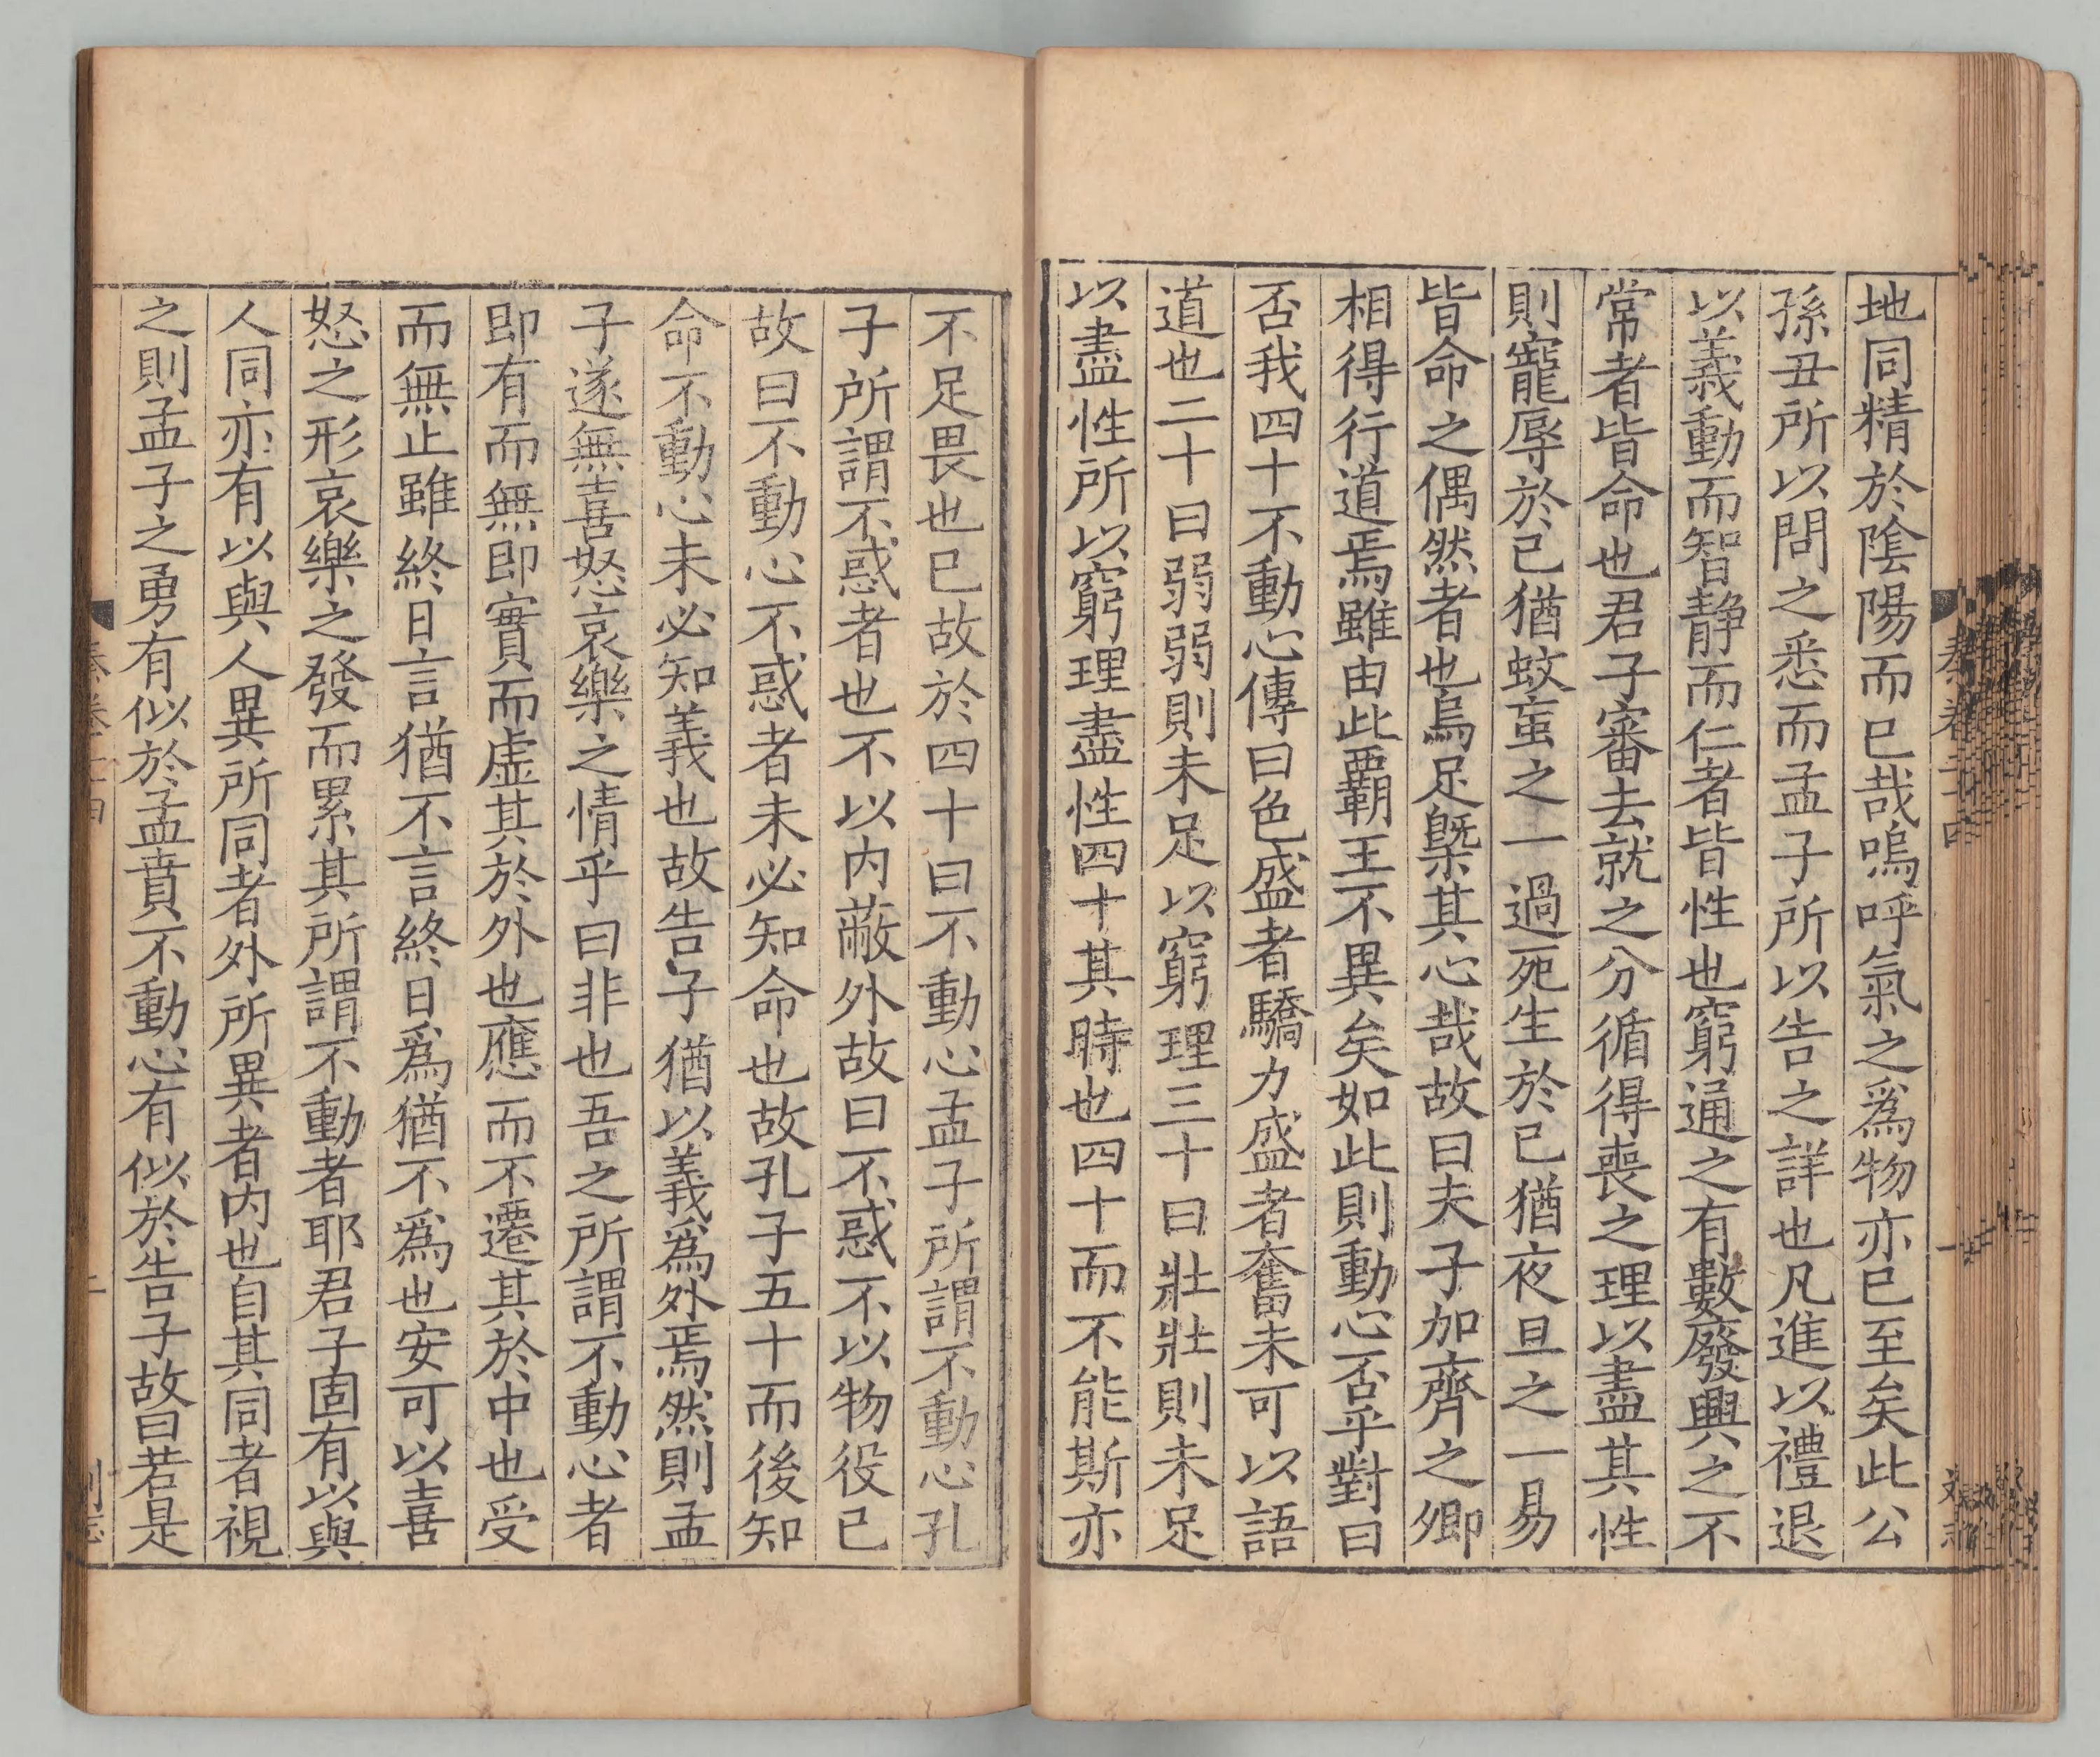 地同精於陰陽而已哉嗚呼氣之爲物亦已至矣此公
孫丑所以問之悉而孟子所以告之詳也凡進以禮退
以義動而智静而仁者皆性也窮通之有數廢興之不
常者皆命也君子審去就之分循得喪之理以盡其性
則寵辱於已猶蚊䖟之一過死生於已猶夜旦之一易
皆命之偶然者也烏足槩其心哉故曰夫子加齊之卿
相得行道焉雖由此覇王不異矣如此則動心否乎對曰
否我四十不動心傳曰色盛者驕力盛者奮未可以語
道也二十曰弱弱則未足以窮理三十曰壯壯則未足
以盡性所以窮理盡性四十其時也四十而不能斯亦
不足畏也已故於四十曰不動心孟子所謂不動心孔
子所謂不惑者也不以内蔽外故曰不惑不以物役已
故曰不動心不惑者未必知命也故孔子五十而後知
命不動心未必知義也故告子猶以義爲外焉然則孟
子遂無喜怒哀樂之情乎曰非也吾之所謂不動心者
即有而無即實而虛其於外也應而不遷其於中也受
而無止雖終日言猶不言終日爲猶不爲也安可以喜
怒之形哀樂之發而累其所謂不動者耶君子固有以與
人同亦有以與人異所同者外所異者内也自其同者視
之則孟子之勇有似於孟賁不動心有似於告子故曰若是